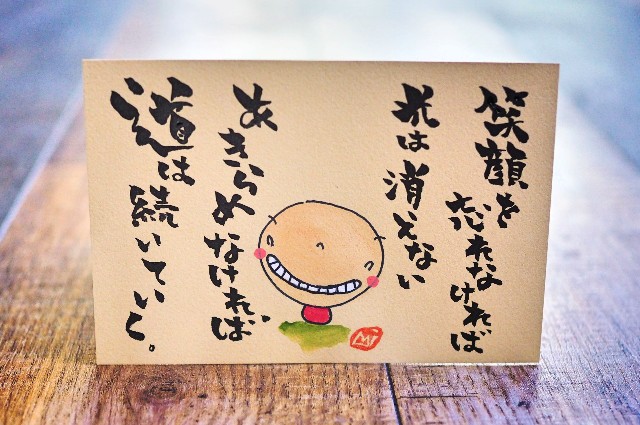 笑顔を
忘れなければ
光は
消えない
あきらめ
なければ、
道は
続いていく。